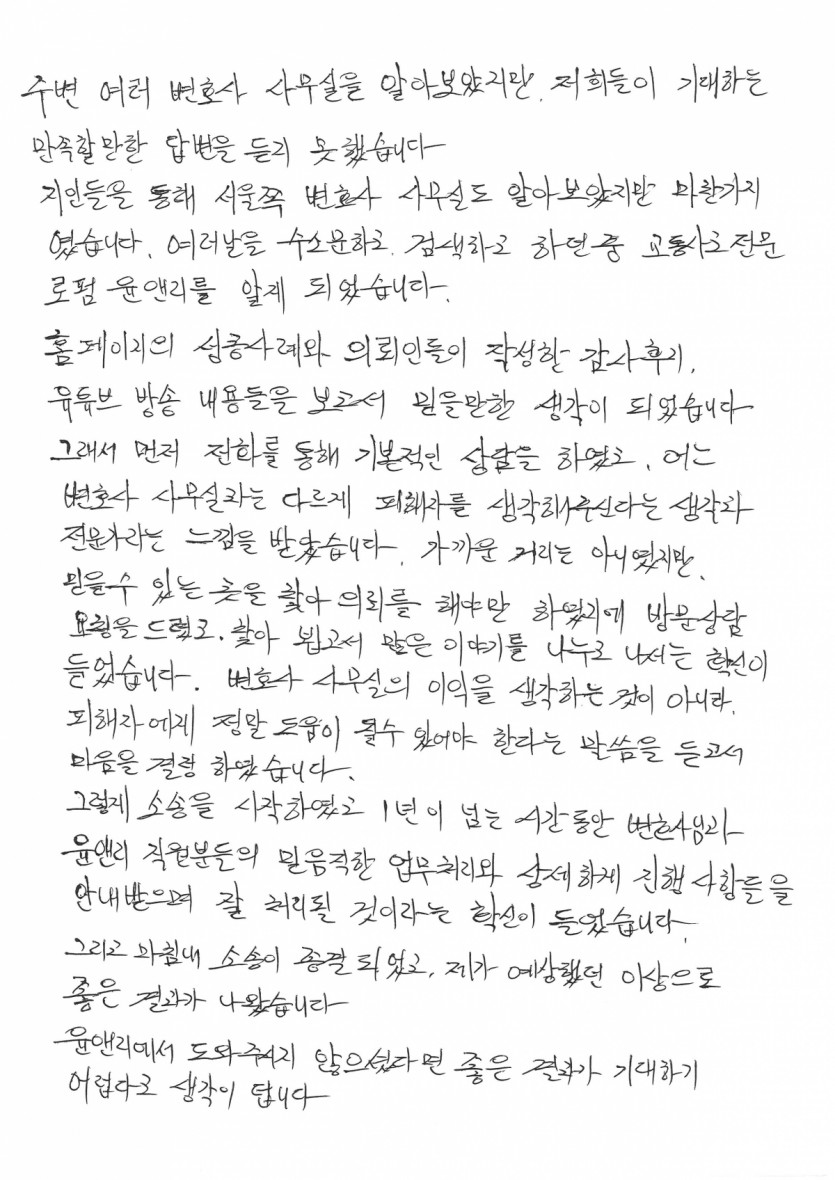 주변 여러 변호사 사무실을 알아보았지만, 저희들이 기대하는
만족할만한 답변을 듣지 못했습니다
지인들을 통해 서울쪽 변호사 사무실도 알아보았지만 마찬가지
였습니다. 여러날을 수소문하고, 검색하고 하던중 교통사고전문
로펌 윤앤리를 알게 되었습니다.
홈페이지의 성공사례와 의뢰인들이 작성한 감사후기,
유튜브 방송 내용들을 보고서 믿을만한 생각이 되었습니다
그래서 먼저 전화를 통해 기본적인 상담을 하였고, 어느
변호사 사무실과는 다르게 피해자를 생각해주신다는 생각과
전문가라는 느낌을 받았습니다. 가까운 거리는 아니였지만,
믿을수 있는 곳을 찾아 의뢰를 해야만 하였기에 방문상담
요청을 드렸고, 찾아 뵙고서 많은 이야기를 나누고 나서는 확신이
들었습니다. 변호사 사무실의 이익을 생각하는 것이 아니라,
피해자에게 정말 도움이 될수 있어야 한다는 말씀을 듣고서
마음을 결정 하였습니다.
그렇게 소송을 시작하였고 1년이 넘는 시간동안 변호사님과
윤앤리 직원분들의 믿음직한 업무처리와 상세하게 진행 사항들을
안내받으며 잘 처리될 것이라는 확신이 들었습니다.
그리고 마침내 소송이 종결 되었고, 제가 예상했던 이상으로
좋은 결과가 나왔습니다
윤앤리에서 도와주시지 않으셨다면 좋은 결과가 기대하기
어렵다고 생각이 됩니다